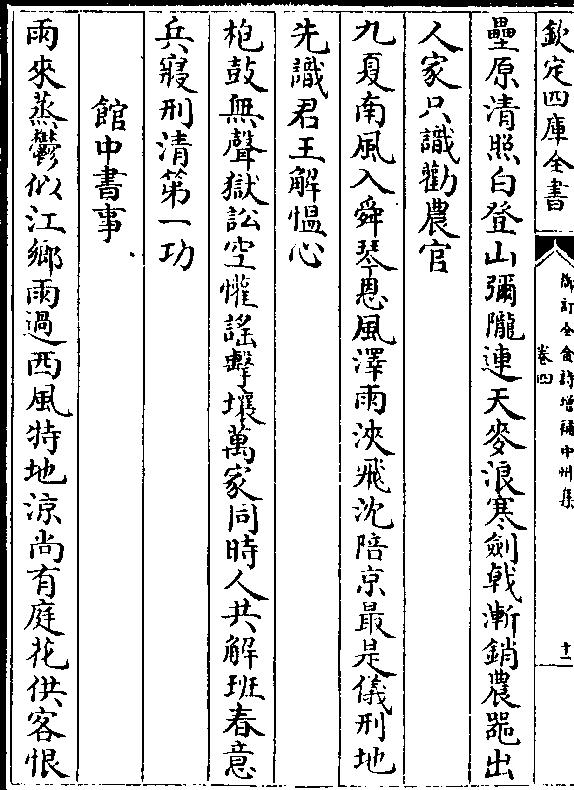 欽定四庫全書
御訂全金詩增補中州集
卷四
十二
壘原清照白登山彌隴連天麥浪寒劍戟漸銷農器出
人家只識勸農官
九夏南風入舜琴恩風澤雨浹飛沈陪京最是儀刑地
先識君王解慍心
枹鼓無聲獄訟空懽謠擊壤萬家同時人共解班春意
兵寢刑清第一功
館中書事
雨來蒸鬱似江鄉雨過西風特地涼尚有庭花供客恨